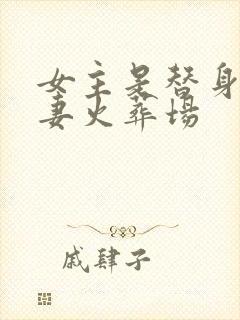 女主是替身
妻火葬场
戚肆子